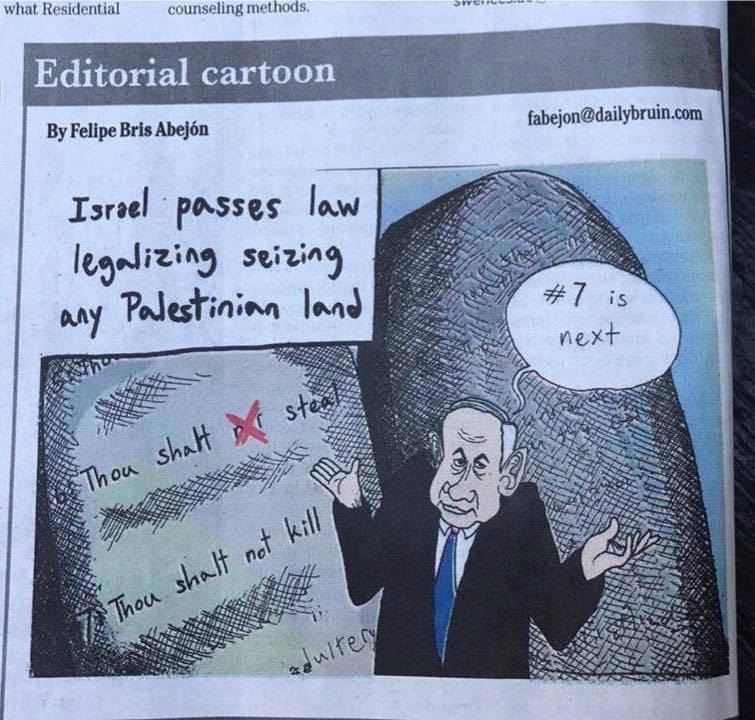 what Residential
counseling methods.
Editorial cartoon
By Felipe Bris Abejón
fabejon@dailybruin.com
Israel passes law
legalizing seizing
any Palestinian land
#7 is
next
Thou shalt steal
7) Thou shalt not kill
adultery